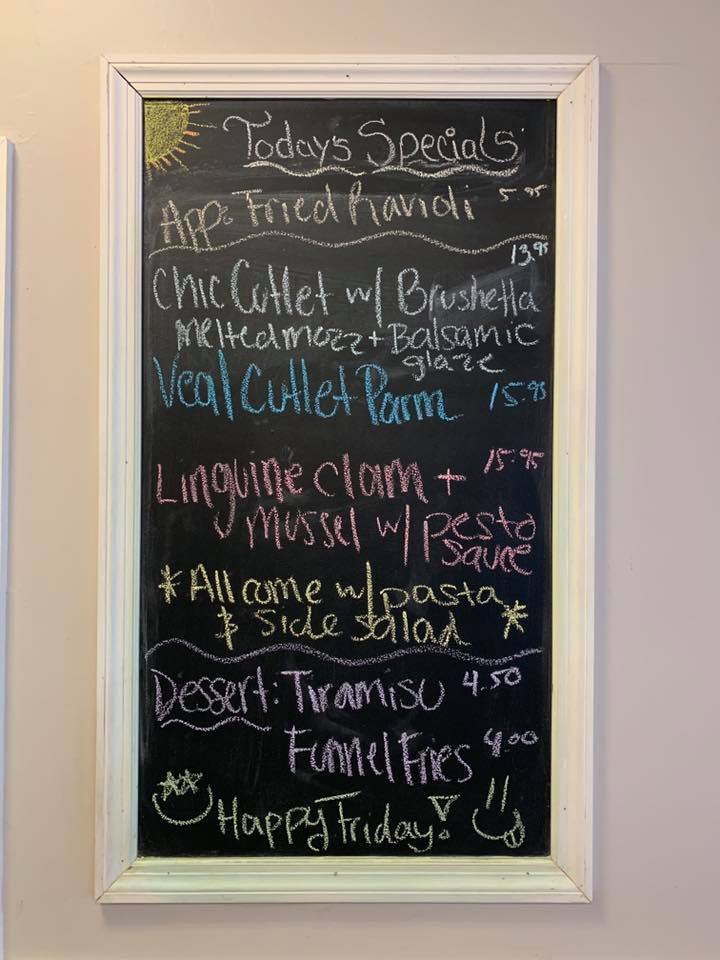 Todays Specials
App: Fried Ravioli 5.95
13.95
Chic Cutlet w/ Brushetta
melted mozz + Balsamic
glaze
Veal Cutlet Parm 15.95
15.95
Linguine clam +
mussel w/ pesto
sauce
*All come w/ pasta
& Side salad *
Dessert: Tiramisu 4.50
Funnel Fries 4.00
Happy Friday!